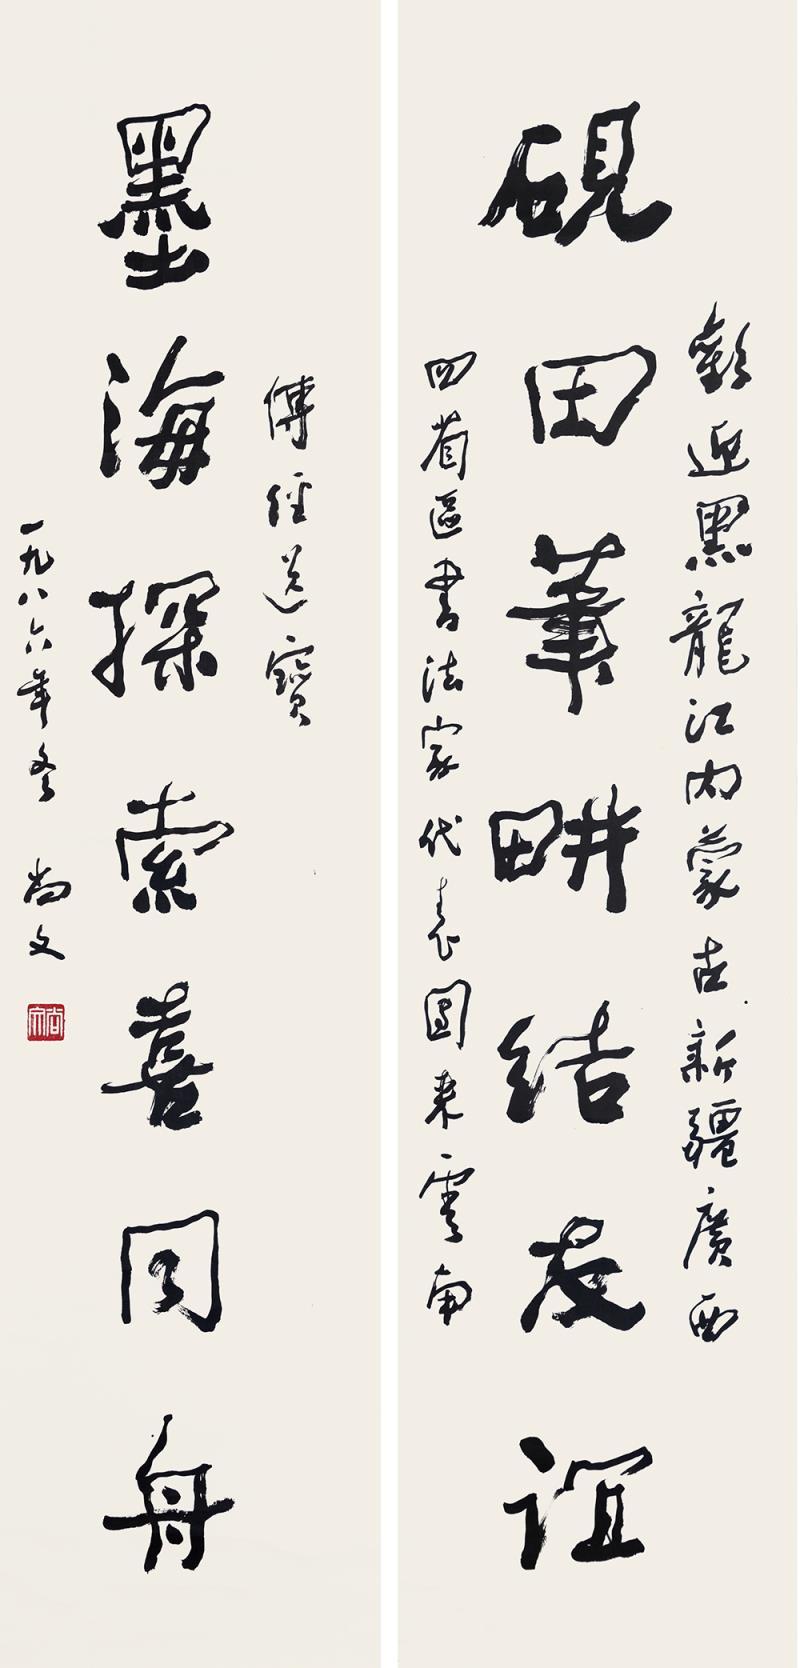 歡迎黑龍江内蒙古新疆廣西
硯田筆畊結友誼
四省區書法家代表團来雲南
傳經送寶
墨海探索喜同舟
一九八六年冬 尚文
尚文